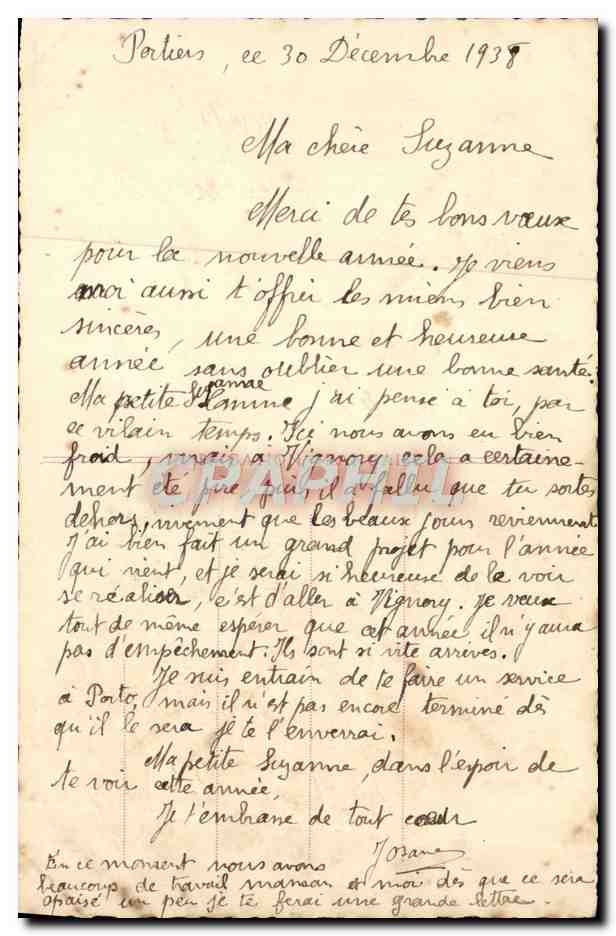 Poitiers, ce 30 Décembre 1938
Ma chère Suzanne
Merci de tes bons vœux
pour la nouvelle année. Je viens
moi aussi t'offrir les miens bien
sincères, une bonne et heureuse
année sans oublier une bonne santé.
Ma petite Suzanne j'ai pensé à toi, par
ce vilain temps. Ici nous avons eu bien
froid, mais à Vignory cela a certaine-
ment été pire puis il a fallu que tu sortes
dehors, vivement que les beaux jours reviennent
J'ai bien fait un grand projet pour l'année
qui vient, et je serai si heureuse de le voir
se réaliser, c'est d'aller à Vignory. Je veux
tout de même espérer que cet année il n'y aura
pas d'empêchement. Ils sont si vite arrivés.
Je suis entrain de te faire un service
à Porto, mais il n'est pas encore terminé dès
qu'il le sera je te l'enverrai.
Ma petite Suzanne, dans l'espoir de
te voir cette année,
Je t'embrasse de tout cœur
En ce moment nous avons
beaucoup de travail maman et moi dès que ce sera
apaisé un peu je te ferai une grande lettre.
CPAPHIL